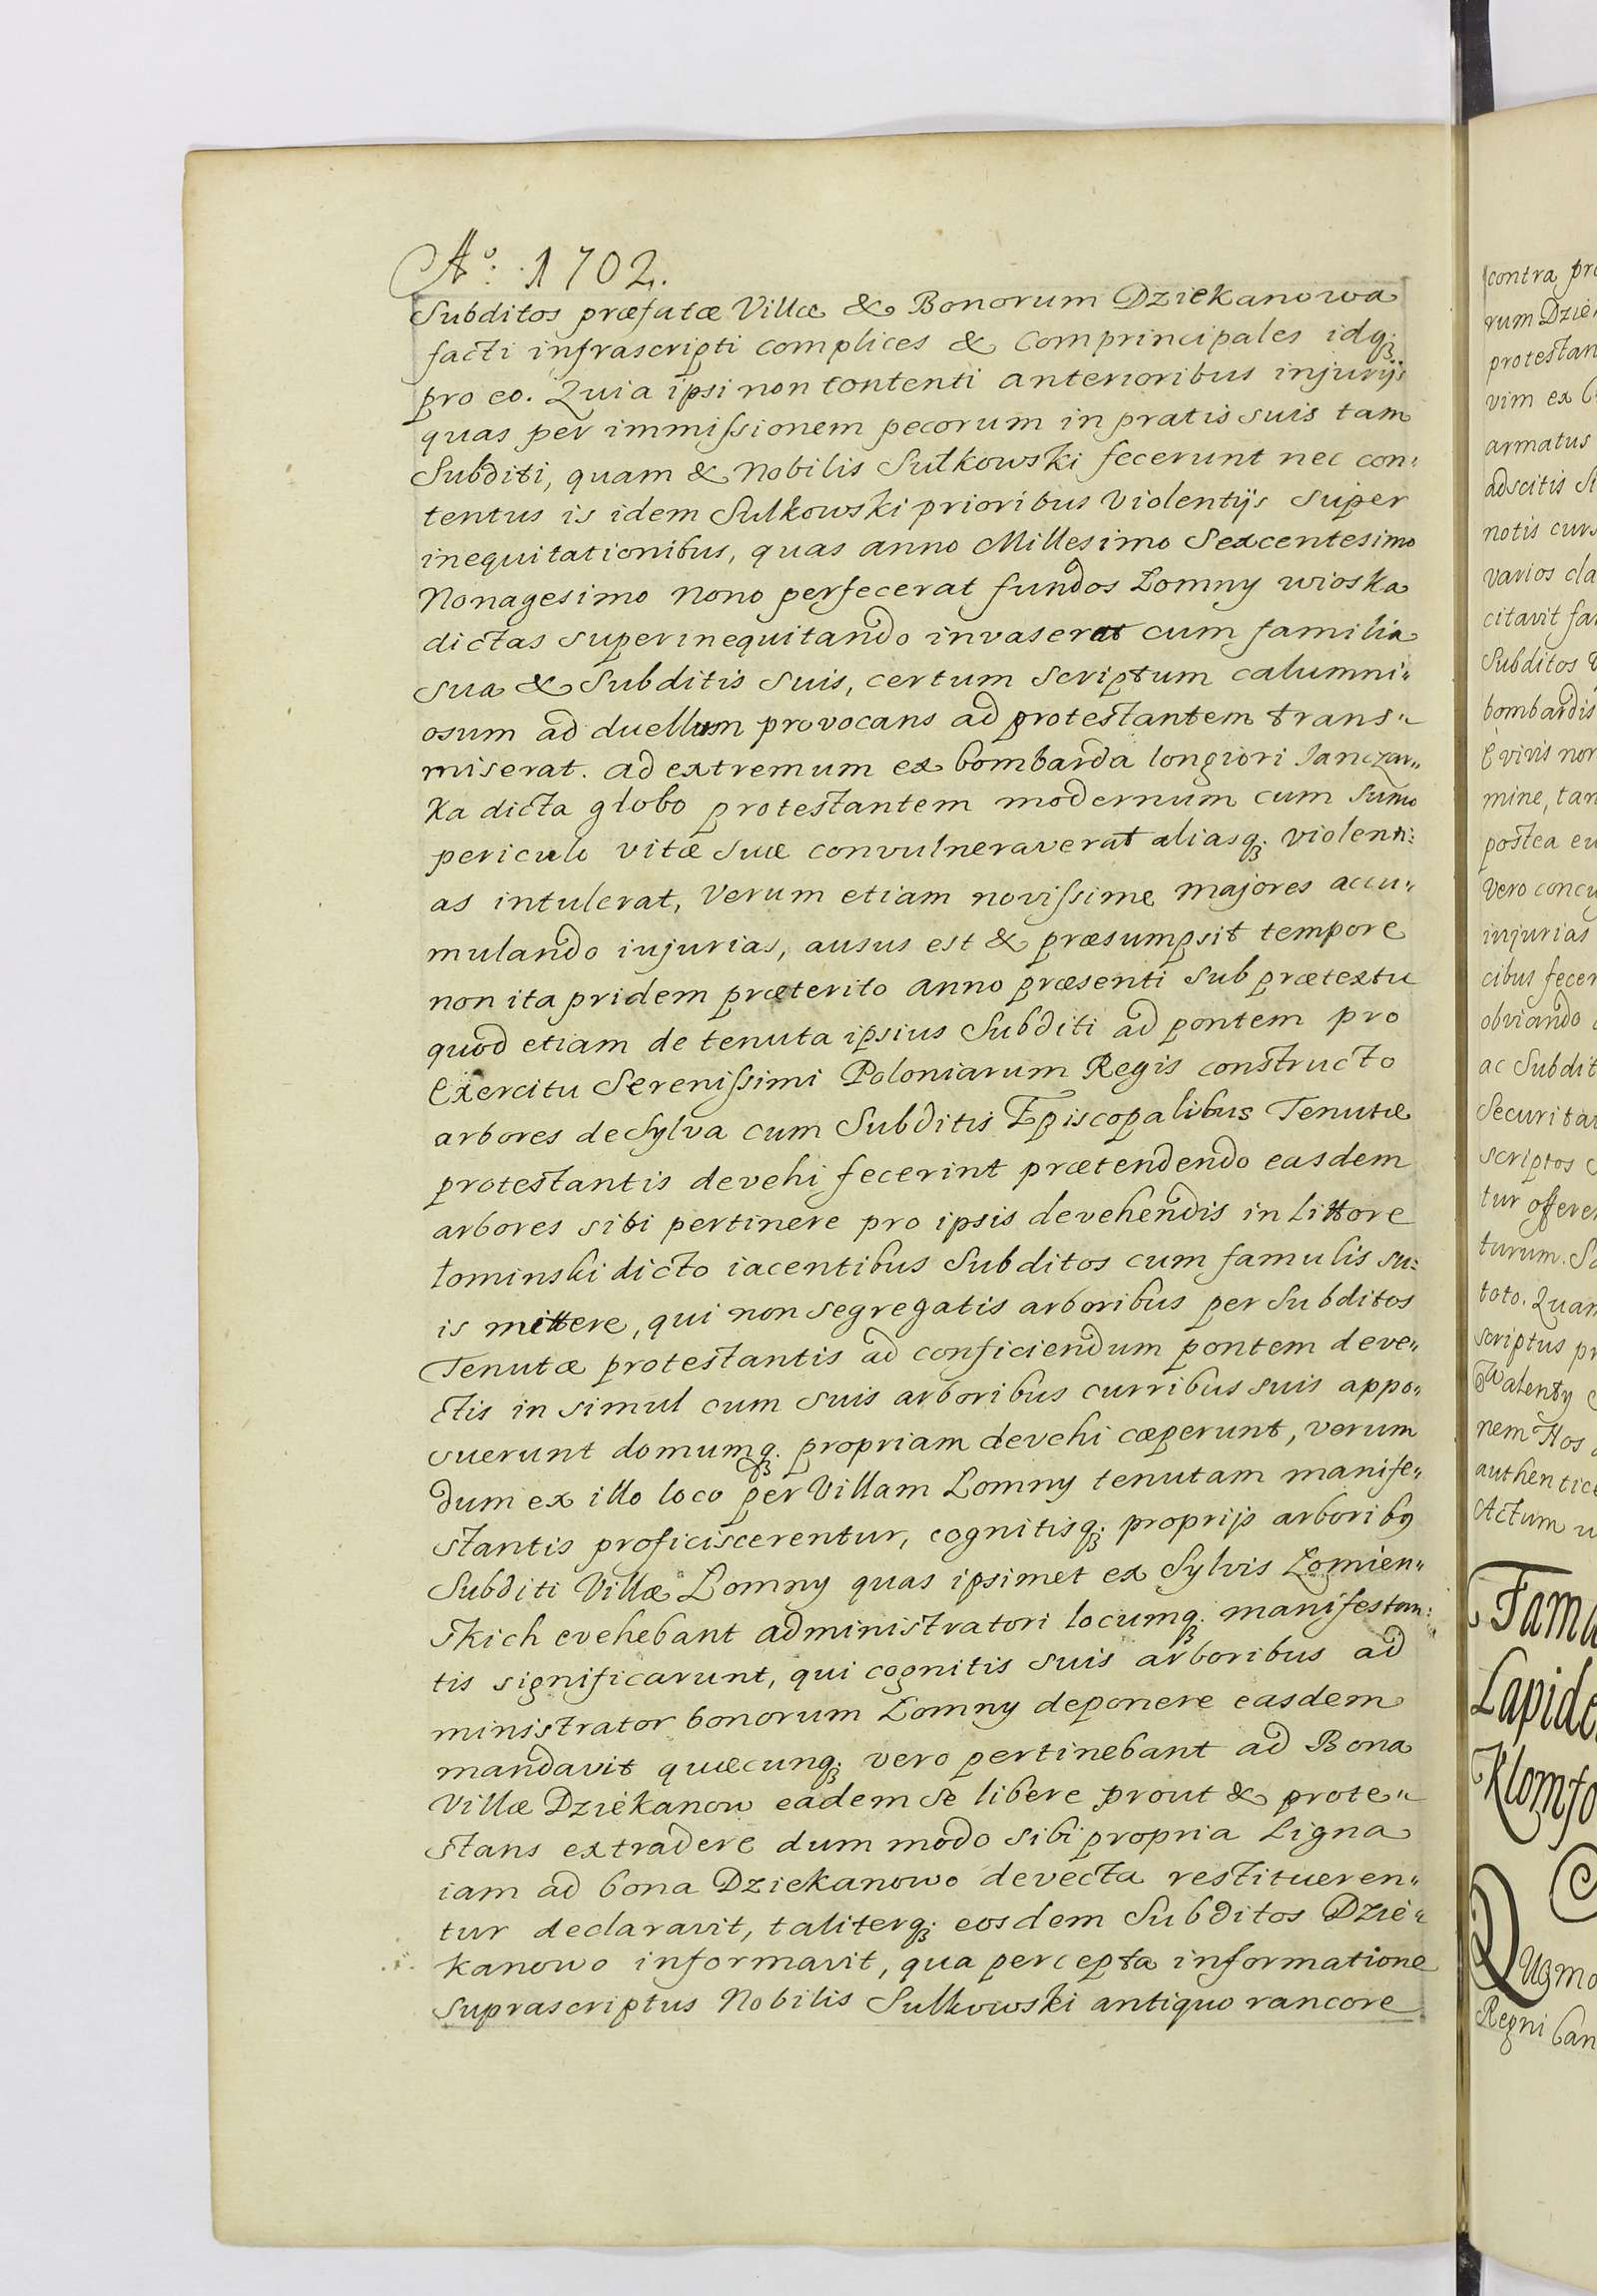 Aº: 1702.
Subditos præfatæ Villæ & Bonorum Dziekanowa
facti infrascripti complices & Comprincipales idq;
pro eo. Quia ipsi non contenti anterioribus injurijs
quas per immissionem pecorum in pratis suis tam
Subditi, quam & Nobilis Sułkowski fecerunt nec con„
tentus is idem Sulkowski prioribus Violentijs super
inequitationibus, quas anno Millesimo Sexcentesimo
Nonagesimo Nono perfecerat fundos Łomny wioska
dictas superinequitando invaserat cum familia
sua & Subditis suis, certum scriptum calumni„
osum ad duellum provocans ad protestantem trans„
miserat. ad extremum ex bombarda longiori Janczar„
ka dicta globo protestantem modernum cum sumo
periculo vitæ suæ convulneraverat aliasq; violenti„
as intulerat, Verum etiam novissime majores accu„
mulando injurias, ausus est & præsumpsit tempore
non ita pridem præterito anno præsenti sub prætextu
quod etiam de tenuta ipsius Subditi ad pontem pro
Exercitu Serenissimi Poloniarum Regis constructo
arbores de Sylva cum Subditis Episcopalibus Tenutæ
protestantis devehi fecerint prætendendo easdem
arbores sibi pertinere pro ipsis devehendis in littore
łominski dicto iacentibus Subditos cum famulis su„
is mittere, qui non segregatis arboribus per Subditos
Tenutæ protestantis ad conficiendum pontem deve„
ctis in simul cum suis arboribus curribus suis appo„
suerunt domumq; propriam devehi cæperunt, verum
dum ex illo loco per Villam Łomny tenutam manife„
stantis proficiscerentur, cognitisq; proprijs arboribꝰ
Subditi Villæ Łomny quas ipsimet ex Sylvis Łomien„
skich evehebant administratori locumq; manifestan„
tis significarunt, qui cognitis suis arboribus ad
ministrator bonorum Łomny deponere easdem
mandavit quæcunq; vero pertinebant ad Bona
Villæ Dziekanow eadem se libere prout & prote„
stans extradere dum modo sibi propria Ligna
iam ad bona Dziekanowo devecta restitueren„
tur declaravit, taliterq; eosdem Subditos Dzie„
kanowo informavit, qua percepta informatione
suprascriptus Nobilis Sulkowski antiquo rancore
contra
rum
protestan
vim ex
armatus
adscitis
notis
varios
citavit
Subditos
bombardis
e vivis
mine,
postea
Vero
injurias
cibus
obviando
ac
Securita
scriptos
tur
turum.
toto.
scriptus
Walenty
nem Hos
authentice
Actum
Regni